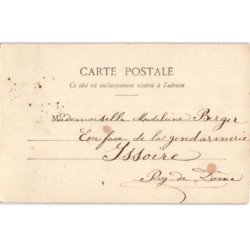 CARTE POSTALE
Ce côté est exclusivement réservé à l'adresse
Mademoiselle Madeleine Berger
En face de la gendarmerie
Issoire
Puy de Dôme